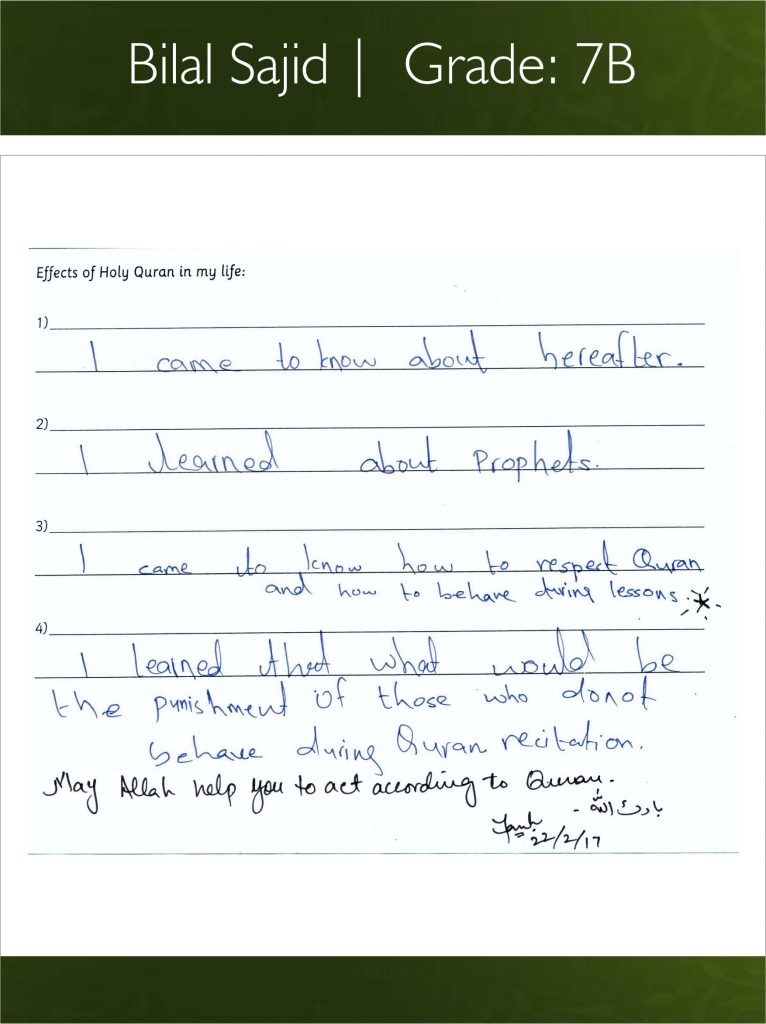 Bilal Sajid | Grade: 7B
Effects of Holy Quran in my life:
1)
I came to know about hereafter.
2)
I learned about Prophets.
3)
I came to know how to respect Quran
and how to behave during lessons.
4)
I learned that what would be
the punishment of those who donot
behave during Quran recitation.
May Allah help you to act according to Quran.
بارك الله
22/2/17